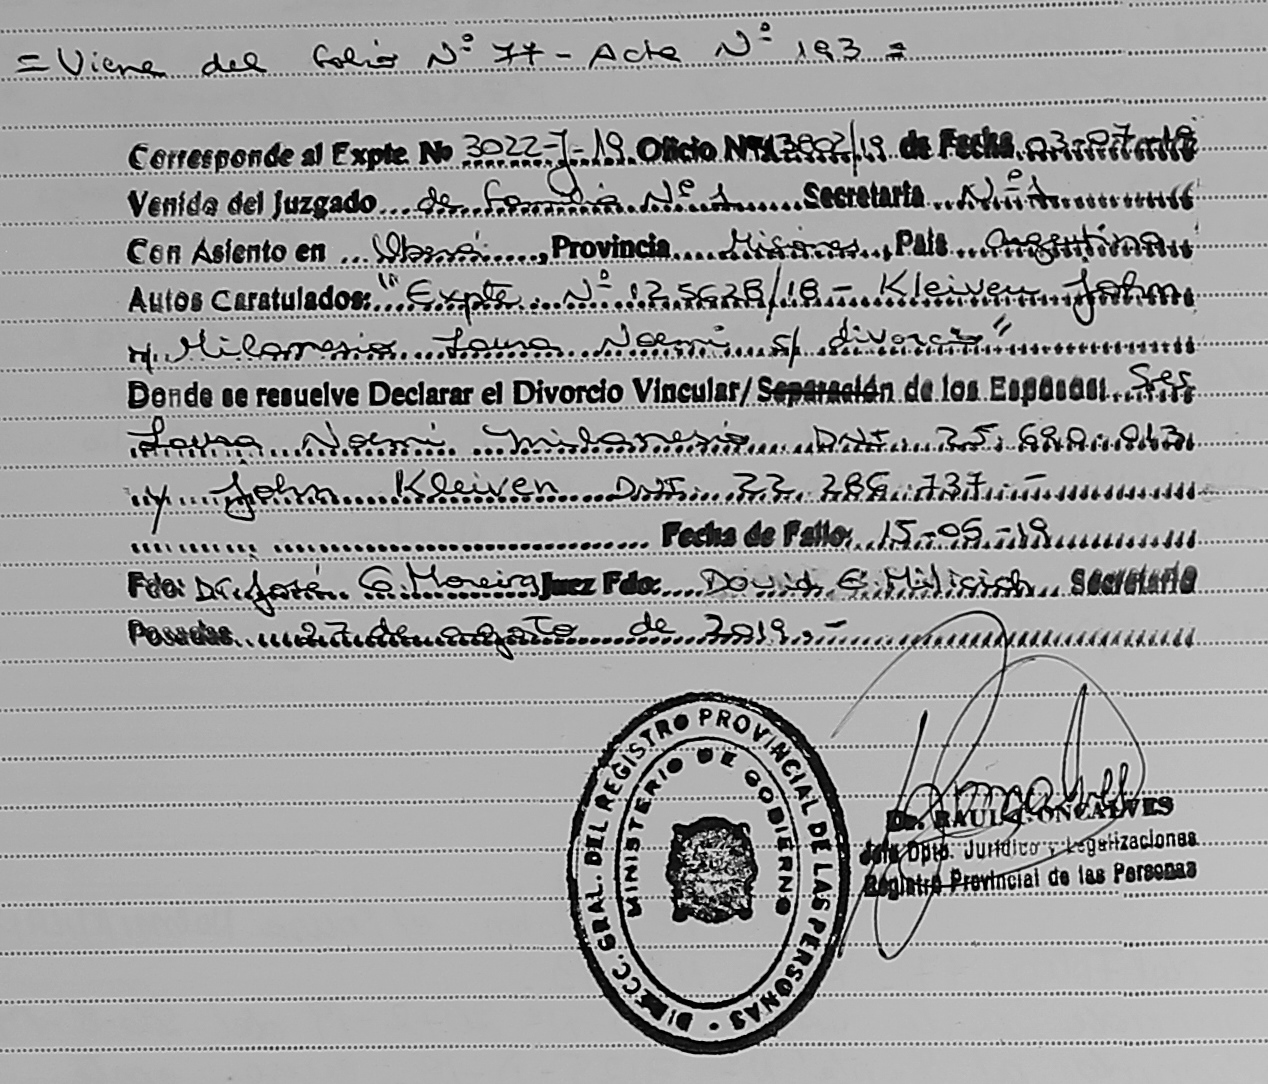 = Viene del folio Nº 77 - Acta Nº 193 =
Corresponde al Expte. No 3022-J-19 Oficio Nº 3802/19 de Fecha 03-07-19
Venida del Juzgado de Familia Nº 1 Secretaria Nº 1
Con Asiento en Oberá, Provincia Misiones, País Argentina
Autos Caratulados: "Expte Nº 125628/18 - Kleiven John
y Milanesio Laura Noemi s/ divorcio"
Donde se resuelve Declarar el Divorcio Vincular/Separación de los Esposos: Sres
Laura Noemi Milanesio DNI. 25.690.013
y John Kleiven DNI. 22.286.737.-
Fecha de Fallo: 15-05-19
Fdo: Dr. José G. Moreira Juez Fdo: David E. Milicich Secretario
Posadas 27 de agosto de 2019.-
DIRECC. GRAL. DEL REGISTRO PROVINCIAL DE LAS PERSONAS
MINISTERIO DE GOBIERNO
Dr. RAUL GONCALVES
Jefe Dpto. Jurídico y Legalizaciones
Registro Provincial de las Personas